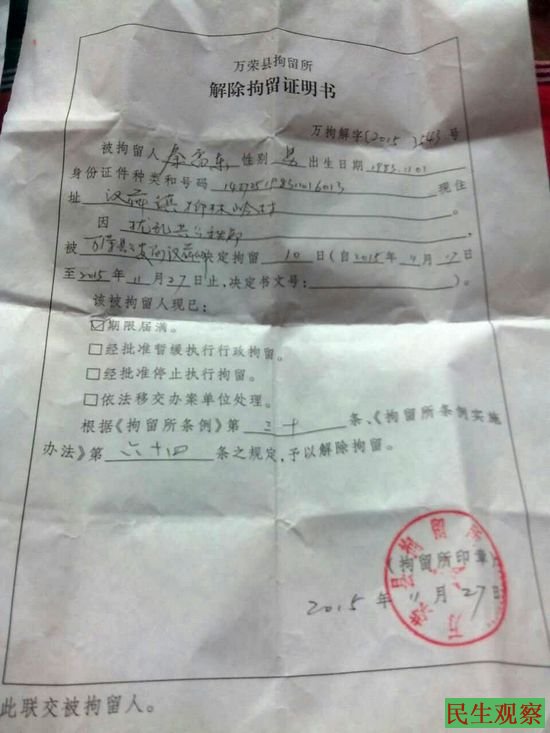 万荣县拘留所
解除拘留证明书
万拘解字〔2015〕543号
被拘留人 性别 男 出生日期 1985.11.01
身份证件种类和号码 现住
址 汉薛镇柳林岭村。
因 扰乱公共秩序
被 万荣县公安局汉薛 决定拘留 10 日(自2015年11月17日
至2015年11月27日止,决定书文号: )。
该被拘留人现已:
☑期限届满。
□经批准暂缓执行行政拘留。
□经批准停止执行拘留。
□依法移交办案单位处理。
根据《拘留所条例》第 三十 条、《拘留所条例实施
办法》第 六十四 条之规定,予以解除拘留。
(拘留所印章)
万荣县拘留所
2015年11月27日
此联交被拘留人。
民生观察